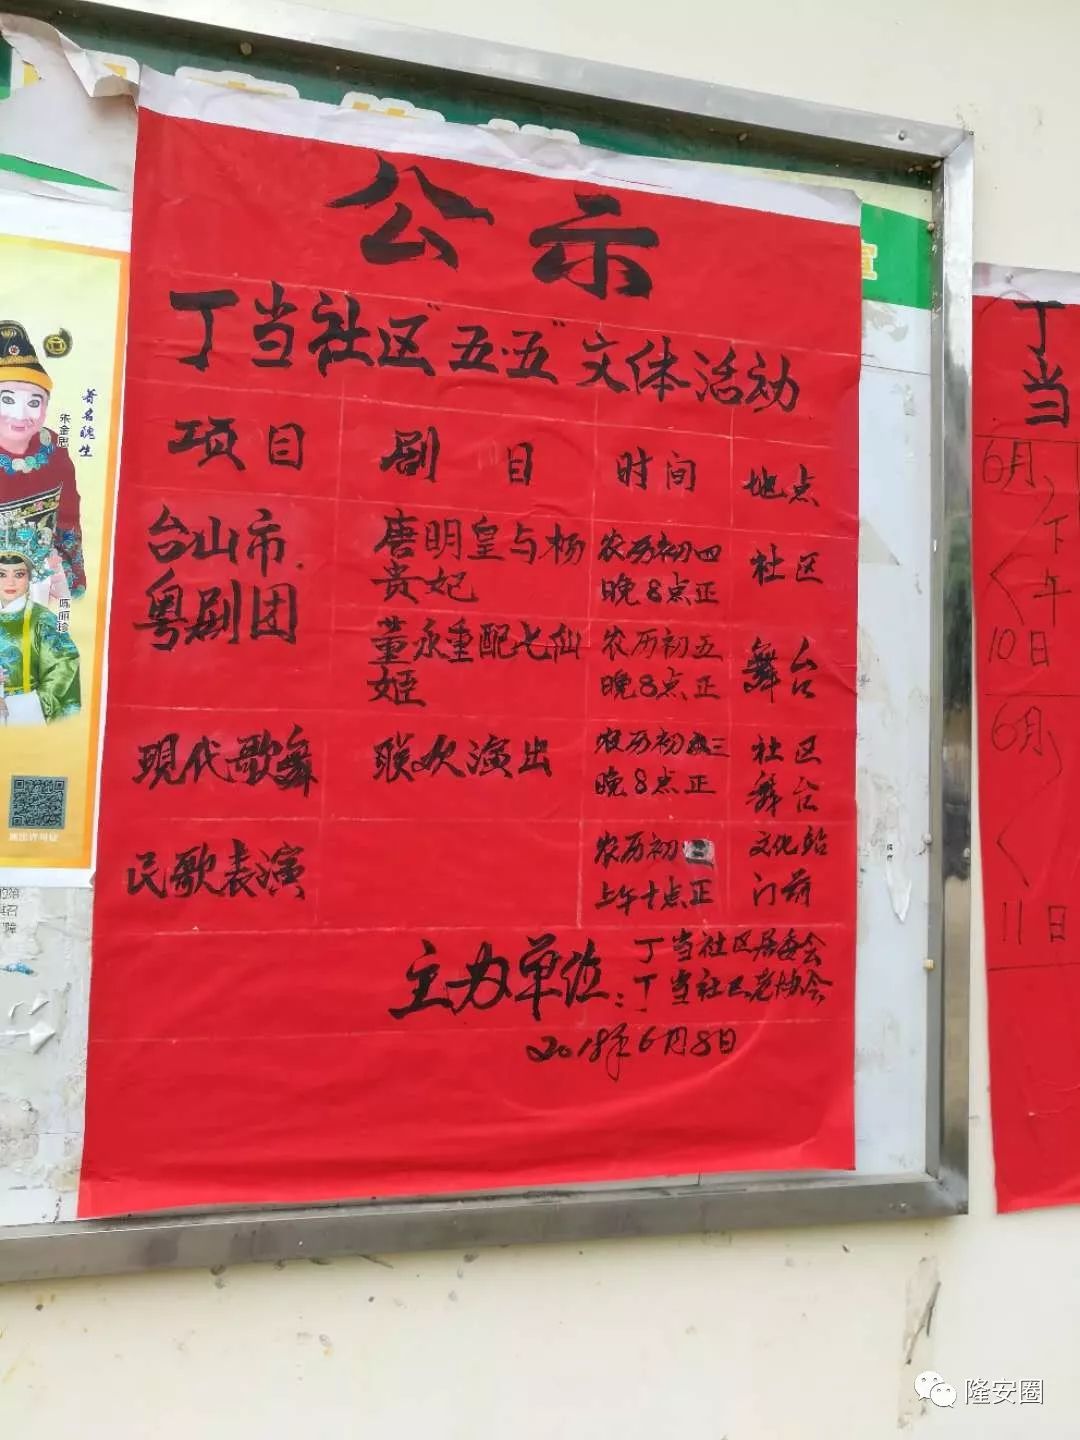 公示
丁当社区"五·五"文体活动
项目 剧目 时间 地点
台山市
粤剧团
唐明皇与杨
贵妃
农历初四
晚8点正
董永重配七仙
姬
农历初五
晚8点正
社区
舞台
现代歌舞
联欢演出
农历初三
晚8点正
社区
舞台
民歌表演
农历初
上午十点正
文化站
门前
主办单位：
丁当社区居委会
丁当社区老协会
2018年6月8日
著名
朱金
陈丽珍
丁当
6月
10日
下午
6月
11日
隆安圈